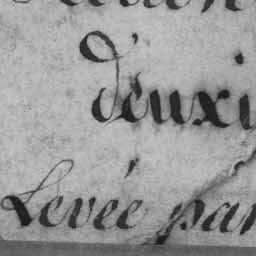 deuxi
Levée par